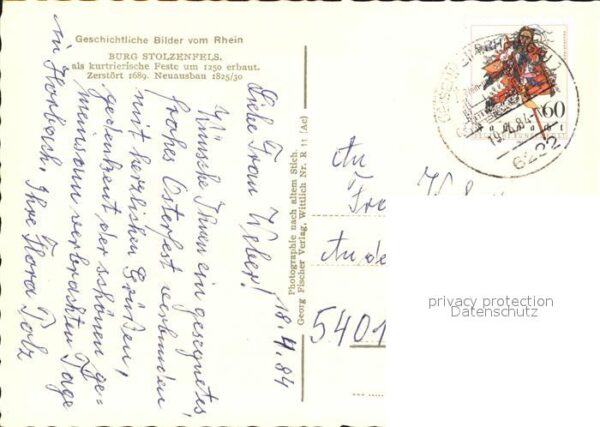 Geschichtliche Bilder vom Rhein
BURG STOLZENFELS,
als kurtrierische Feste um 1250 erbaut.
Zerstört 1689. Neuausbau 1825/30
18.4.84
Liebe Frau Weber!
Wünsche Ihnen ein gesegnetes,
frohes Osterfest verbunden
mit herzlichen Grüßen,
gedenkend der schönen ge-
meinsam verbrachten Tage
in Horbach, Ihre Flora Tolz
Photographie nach altem Stich.
Georg Fischer Verlag, Wittlich Nr. R 11 (Ac)
60
19.4.84
6222
An
Fre
An de
5401
privacy protection
Datenschutz